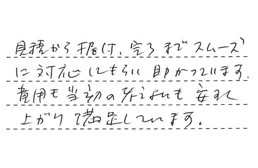 見積から据付、完了までスムーズ
に対応してもらい助かっています。
費用も当初の予定よりも安く
上がり満足しています。